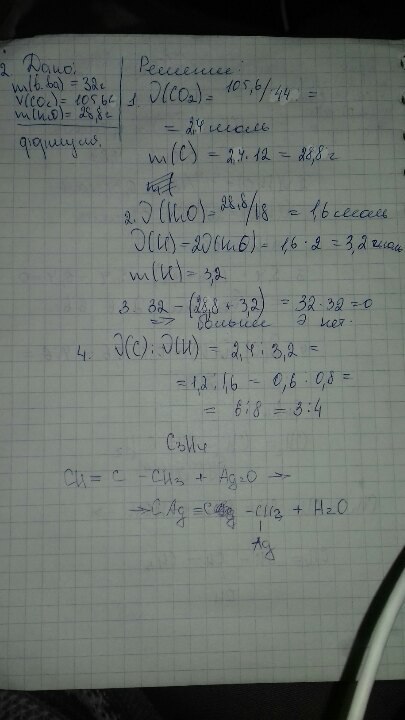 2 Дано:
m(в-ва) = 32г
V(CO2) = 105,6г
m(H2O) = 28,8г
формула.
Решение:
1. ν(CO2) = 105,6/44 =
= 2,4 моль
m(C) = 2,4·12 = 28,8 г
2. ν(H2O) = 28,8/18 = 1,6 моль
ν(H) = 2ν(H2O) = 1,6·2 = 3,2 моль
m(H) = 3,2
3. 32 - (28,8 + 3,2) = 32-32=0
=> больше э нет.
4. ν(C) : ν(H) = 2,4 : 3,2 =
= 1,2 : 1,6 = 0,6 : 0,8 =
= 6:8 = 3:4
C3H4
CH ≡ C - CH3 + Ag2O →
→ CAg ≡ C - CH3 + H2O
Ag